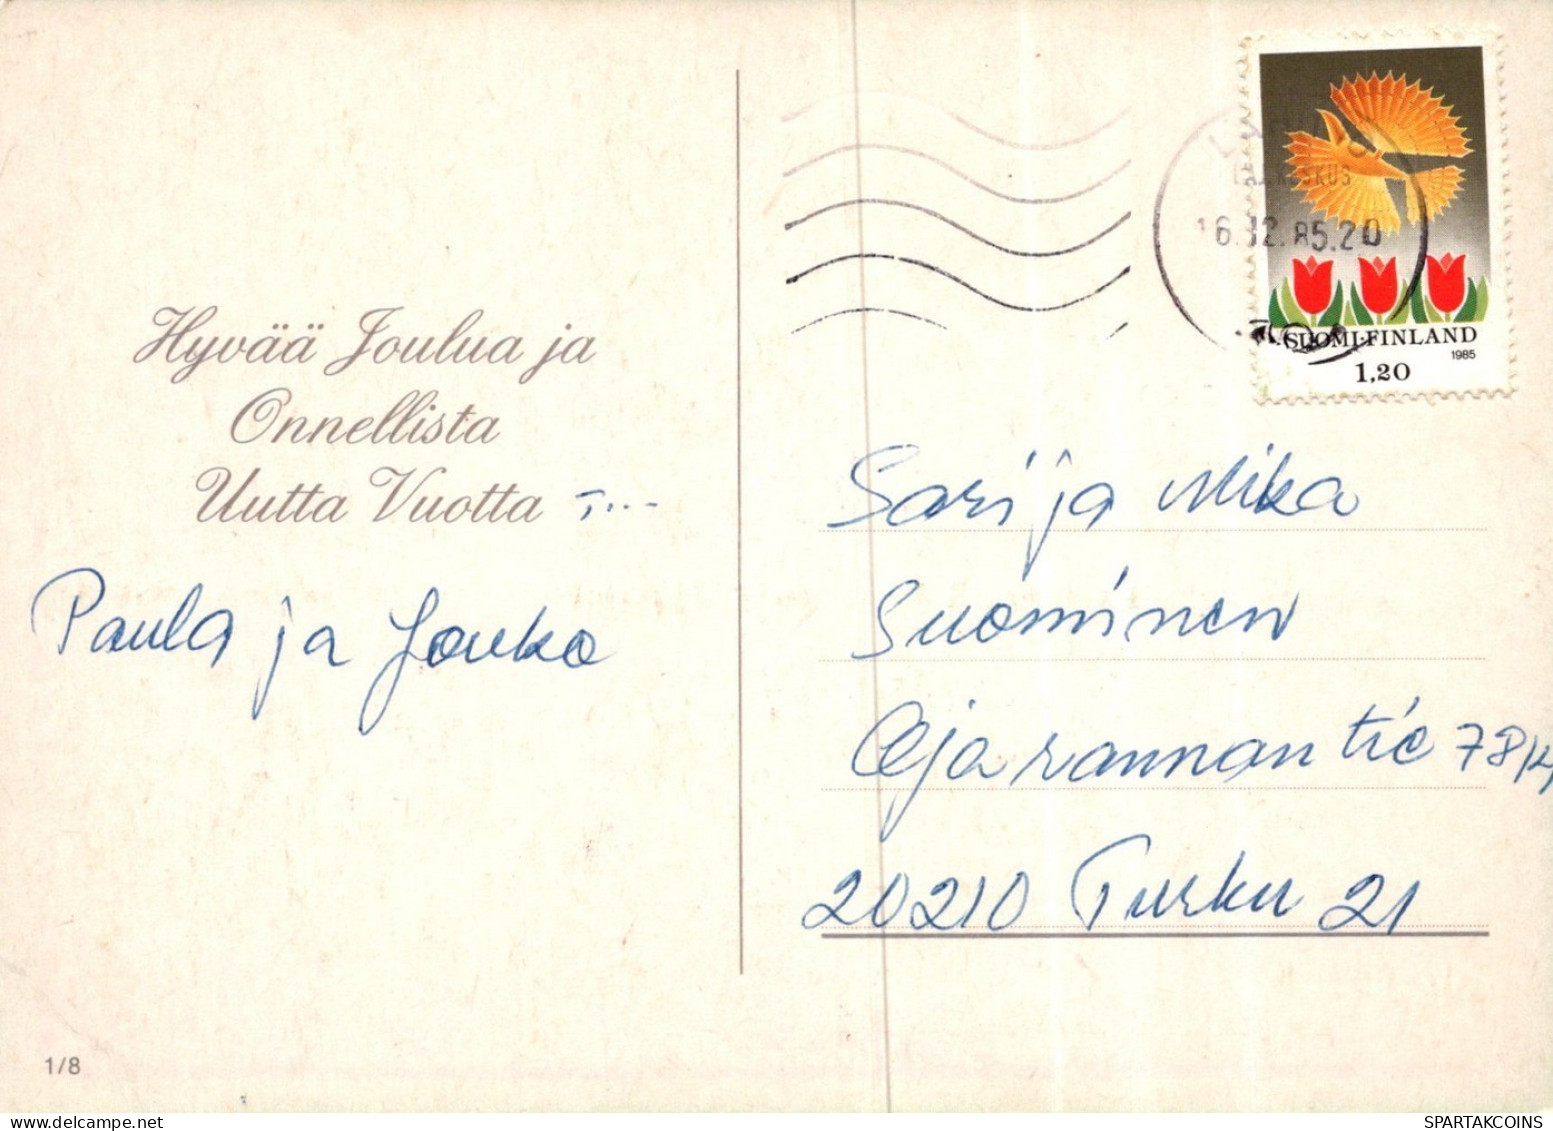 Hyvää Joulua ja
Onnellista
Uutta Vuotta
T...
Paula ja Jouko
1/8
KESKUS
16.12.85.20
SUOMI·FINLAND
1985
1,20
Sari ja Mika
Suominen
Ojarannantie 78
20210 Turku 21
SPARTAKCOINS
www.delcampe.net